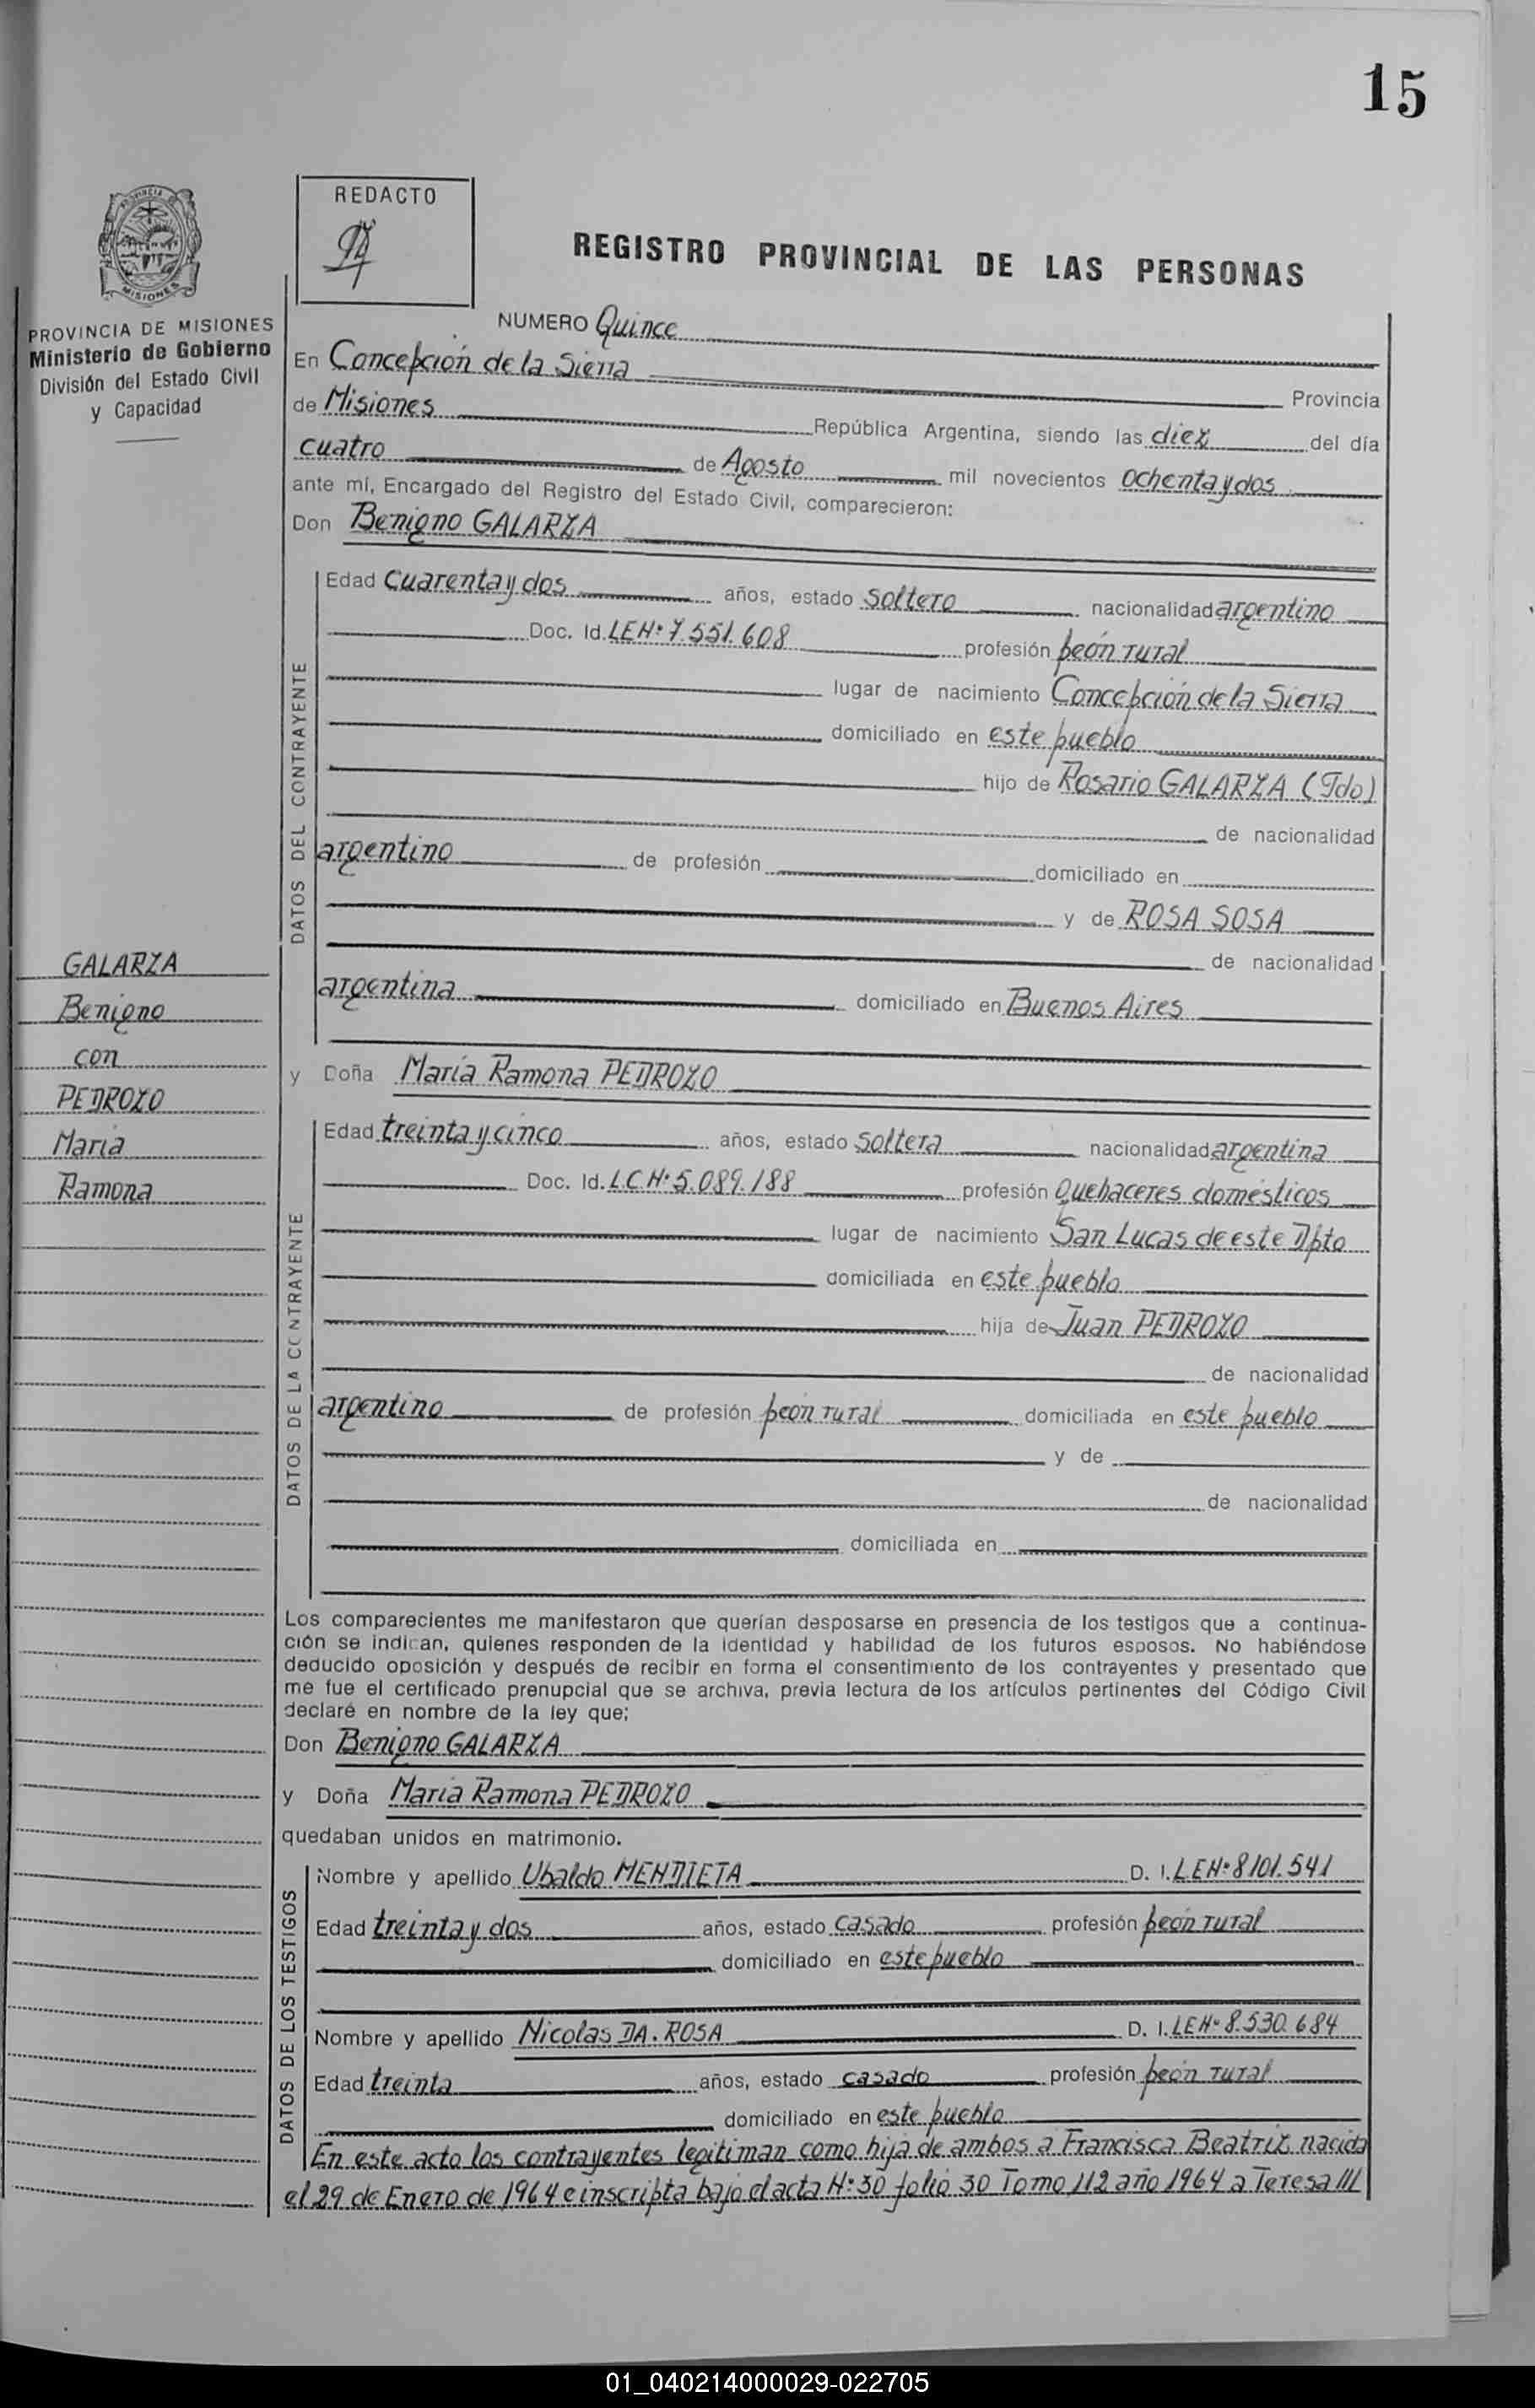 15
REDACTO
REGISTRO PROVINCIAL DE LAS PERSONAS
MISIONES
PROVINCIA DE MISIONES
Ministerio de Gobierno
División del Estado Civil
y Capacidad
NUMERO Quince
En Concepción de la Sierra Provincia
de Misiones República Argentina, siendo las diez del día
cuatro de Agosto mil novecientos ochenta y dos
ante mí, Encargado del Registro del Estado Civil, comparecieron:
Don Benigno GALARZA
DATOS DEL CONTRAYENTE
Edad Cuarenta y dos años, estado soltero nacionalidad argentino
Doc. Id. LENº 7.551.608 profesión peón rural
lugar de nacimiento Concepción de la Sierra
domiciliado en este pueblo
hijo de Rosario GALARZA (Fdo)
de nacionalidad
argentino de profesión domiciliado en
y de ROSA SOSA
de nacionalidad
argentina domiciliado en Buenos Aires
GALARZA
Benigno
con
PEDROZO
María
Ramona
y Doña María Ramona PEDROZO
DATOS DE LA CONTRAYENTE
Edad treinta y cinco años, estado soltera nacionalidad argentina
Doc. Id. L.C.Nº 5.089.188 profesión Quehaceres domésticos
lugar de nacimiento San Lucas de este Dpto
domiciliada en este pueblo
hija de Juan PEDROZO
de nacionalidad
argentino de profesión peón rural domiciliada en este pueblo
y de
de nacionalidad
domiciliada en
Los comparecientes me manifestaron que querían desposarse en presencia de los testigos que a continua-
ción se indican, quienes responden de la identidad y habilidad de los futuros esposos. No habiéndose
deducido oposición y después de recibir en forma el consentimiento de los contrayentes y presentado que
me fue el certificado prenupcial que se archiva, previa lectura de los artículos pertinentes del Código Civil
declaré en nombre de la ley que;
Don Benigno GALARZA
y Doña María Ramona PEDROZO
quedaban unidos en matrimonio.
DATOS DE LOS TESTIGOS
Nombre y apellido Ubaldo MENDIETA D. I. LENº 8101.541
Edad treinta y dos años, estado casado profesión peón rural
domiciliado en este pueblo
Nombre y apellido Nicolas DA.ROSA D. I. LENº 8.530.684
Edad treinta años, estado casado profesión peón rural
domiciliado en este pueblo
En este acto los contrayentes legitiman como hija de ambos a Francisca Beatriz nacida
el 29 de Enero de 1964 e inscripta bajo el acta Nº 30 folio 30 Tomo 112 año 1964 a Teresa ///
01_040214000029-022705